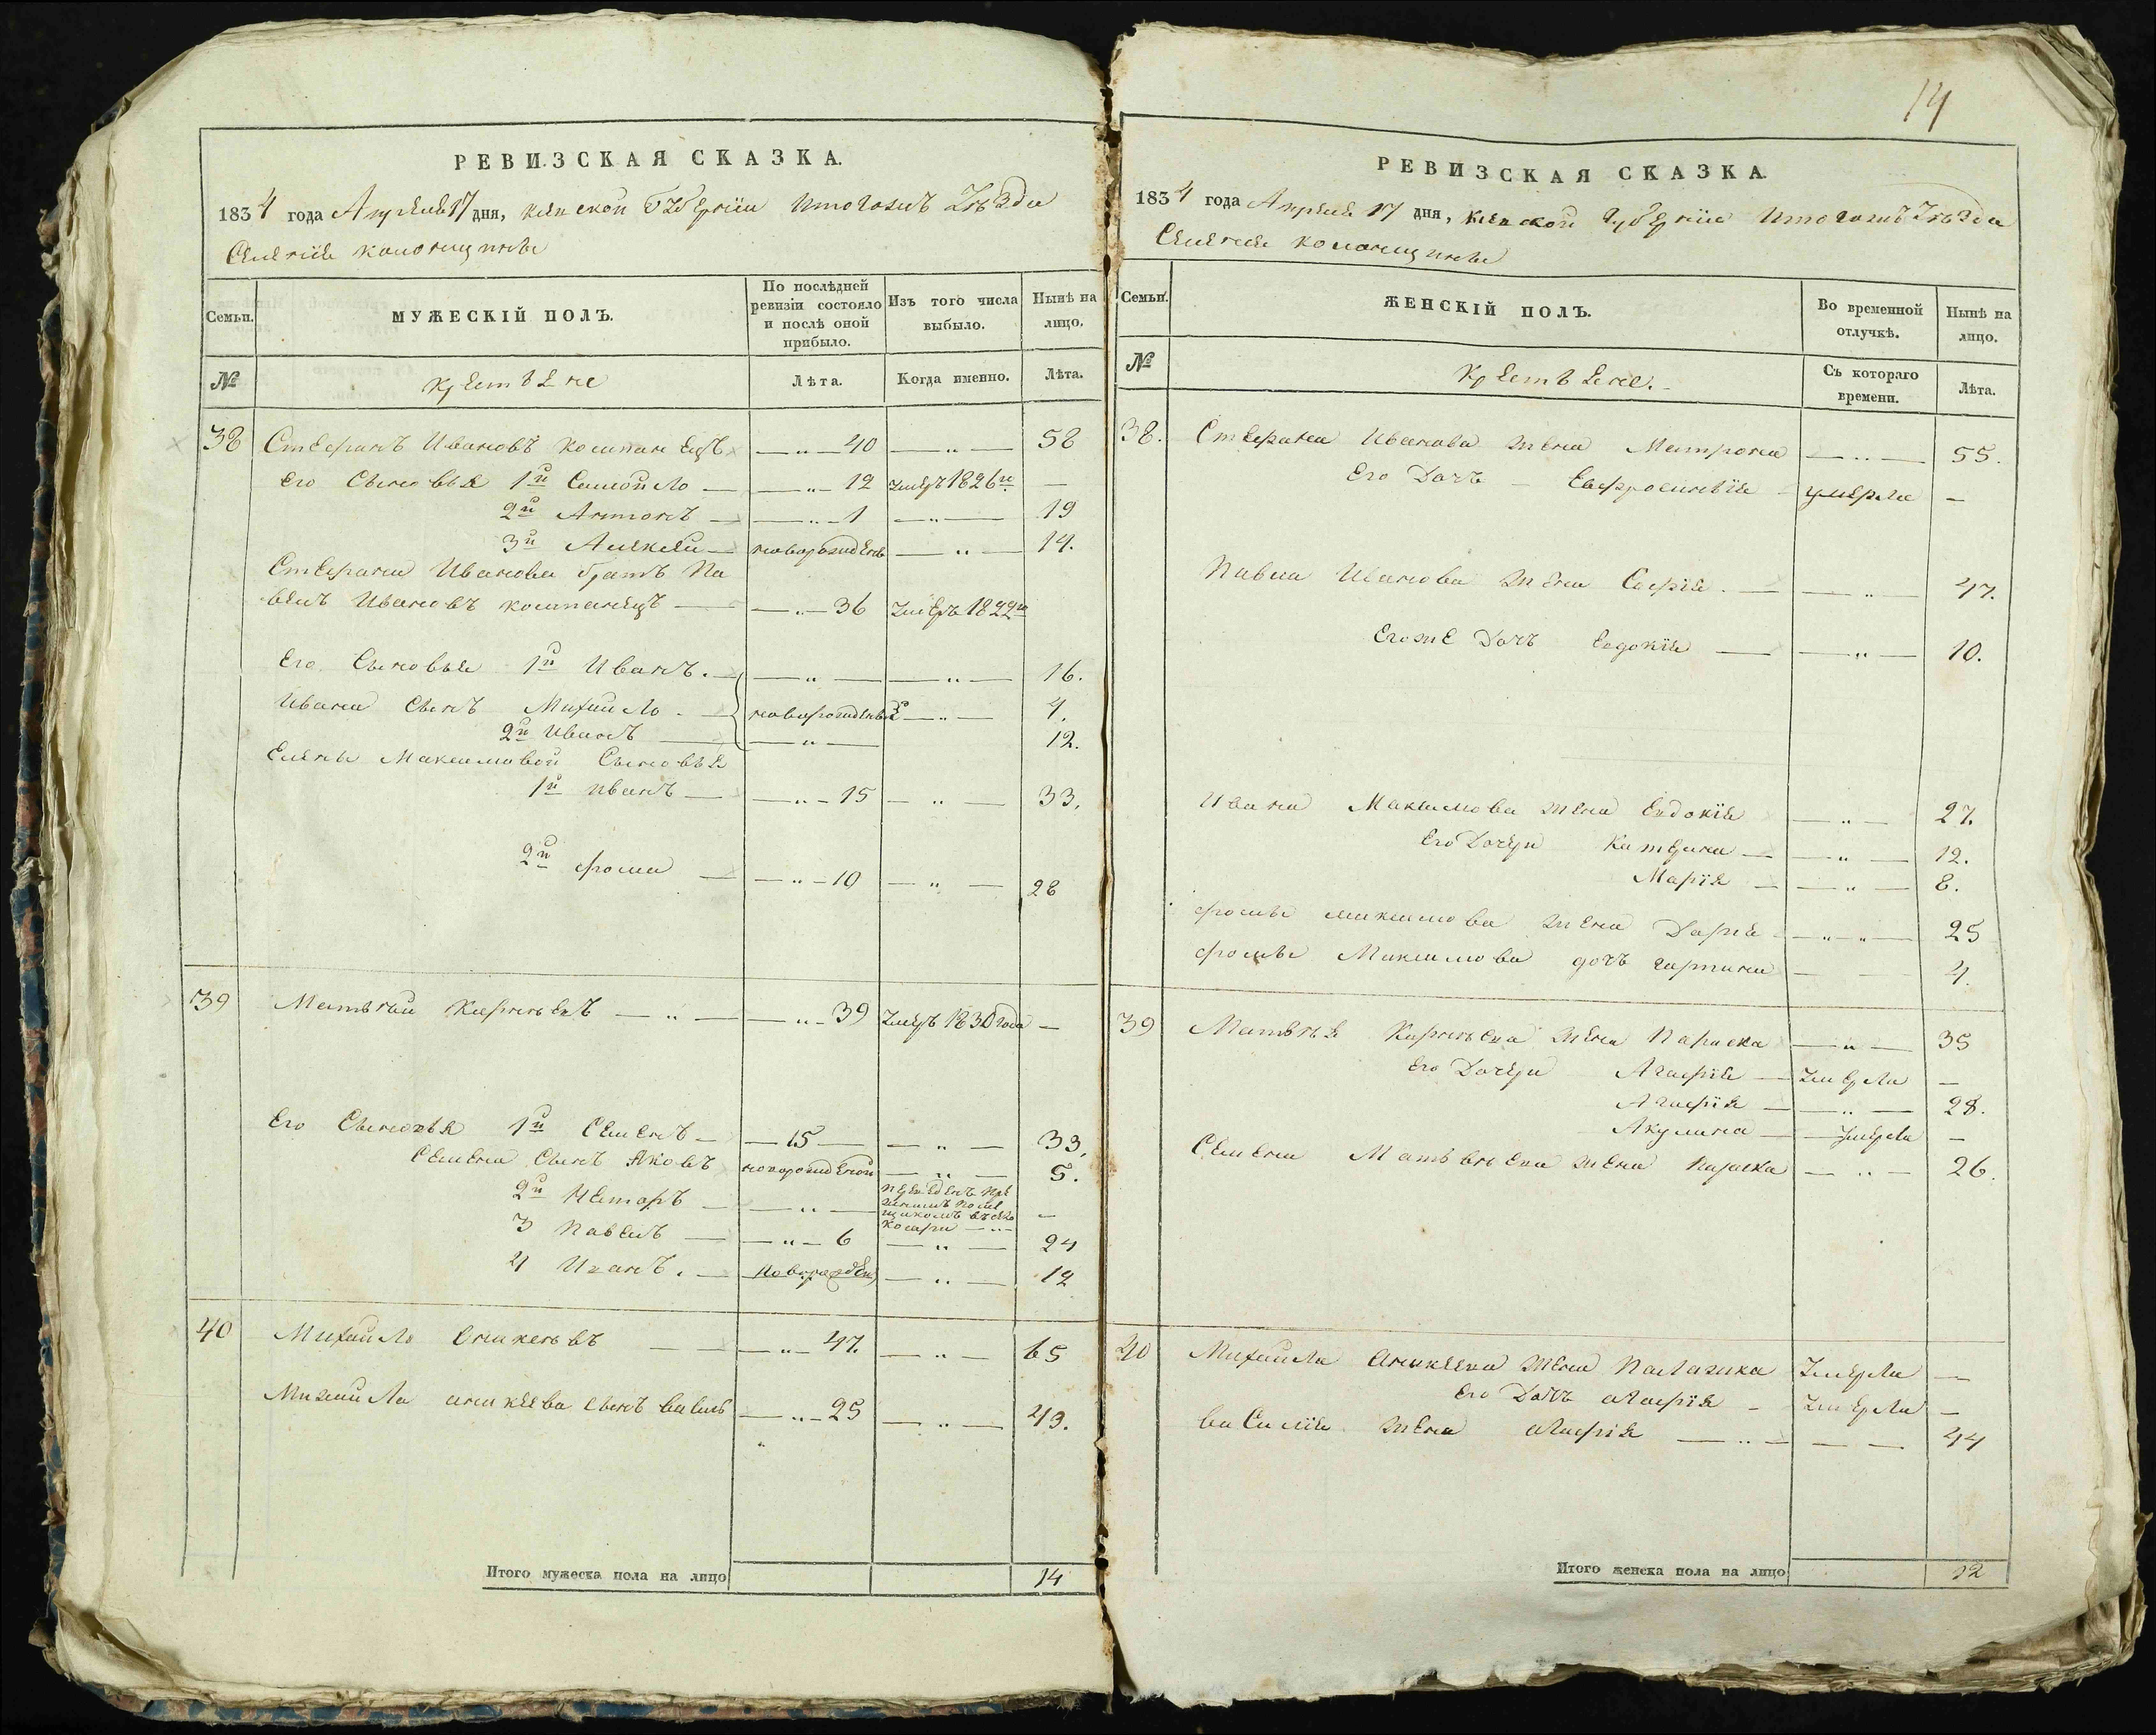 РЕВИЗСКАЯ СКАЗКА.
1834 года Апреля 17 дня, киевской Губернии Уезда
Селения
Семьи. МУЖЕСКІЙ ПОЛЪ. По послѣдней ревизіи состояло и послѣ оной прибыло. Изъ того числа выбыло. Нынѣ на лицо.
№ Крестьяне Лѣта. Когда именно. Лѣта.
38 Стефанъ Ивановъ Компанецъ 40 58
Его Сыновья 1й Самойло 12 умеръ 1826го —
2й Антонъ 1 19
3й Алексей новорожденъ 14.
Стефана Иванова братъ Па
велъ Ивановъ компанецъ 36 умеръ 1822го
Его Сыновья 1й Иванъ. 16.
Ивана Сынъ Михайло новорожденые 4.
2й Иванъ 12.
Елены Максимовой Сыновья
1й иванъ 15 33.
2й фома 10 28
39 Матвей 39 Умеръ 1830 года —
Его Сыновья 1й Семенъ 15 33.
Семена Сынъ Яковъ новорожденой 5.
2й Несторъ —
3 Павелъ 6 24
4 Иванъ. Новорожденъ 12
40 Михайло 47. 65
Михайла аникеева сынъ 25 43.
Итого мужеска пола на лицо 14
14
РЕВИЗСКАЯ СКАЗКА.
1834 года Апреля 17 дня, киевской губернии Уезда
Селения
Семьи. ЖЕНСКІЙ ПОЛЪ. Во временной отлучкѣ. Нынѣ на лицо.
№ Крестьяне. Съ котораго времени. Лѣта.
38. Стефана Иванова жена Матрона 55.
Его Дочъ Евфросиния умерла —
Павла Иванова жена Софія 47.
Егоже Дочъ Евдокія 10.
Ивана Максимова жена Евдокія 27.
Его Дочери Катерина 12.
Марія 8.
фомы максимова жена Дарія 25
фомы Максимова дочъ 4.
39 Матвея жена Параска 35
Его Дочери Агафія Умерла —
Агафія 28.
Акулина Умерла —
Семена Матвеева жена параска 26.
40 Михайла аникеева жена Палажка Умерла —
Его Дочъ агафія Умерла —
василія жена агафія 44
Итого женска пола на лицо 12